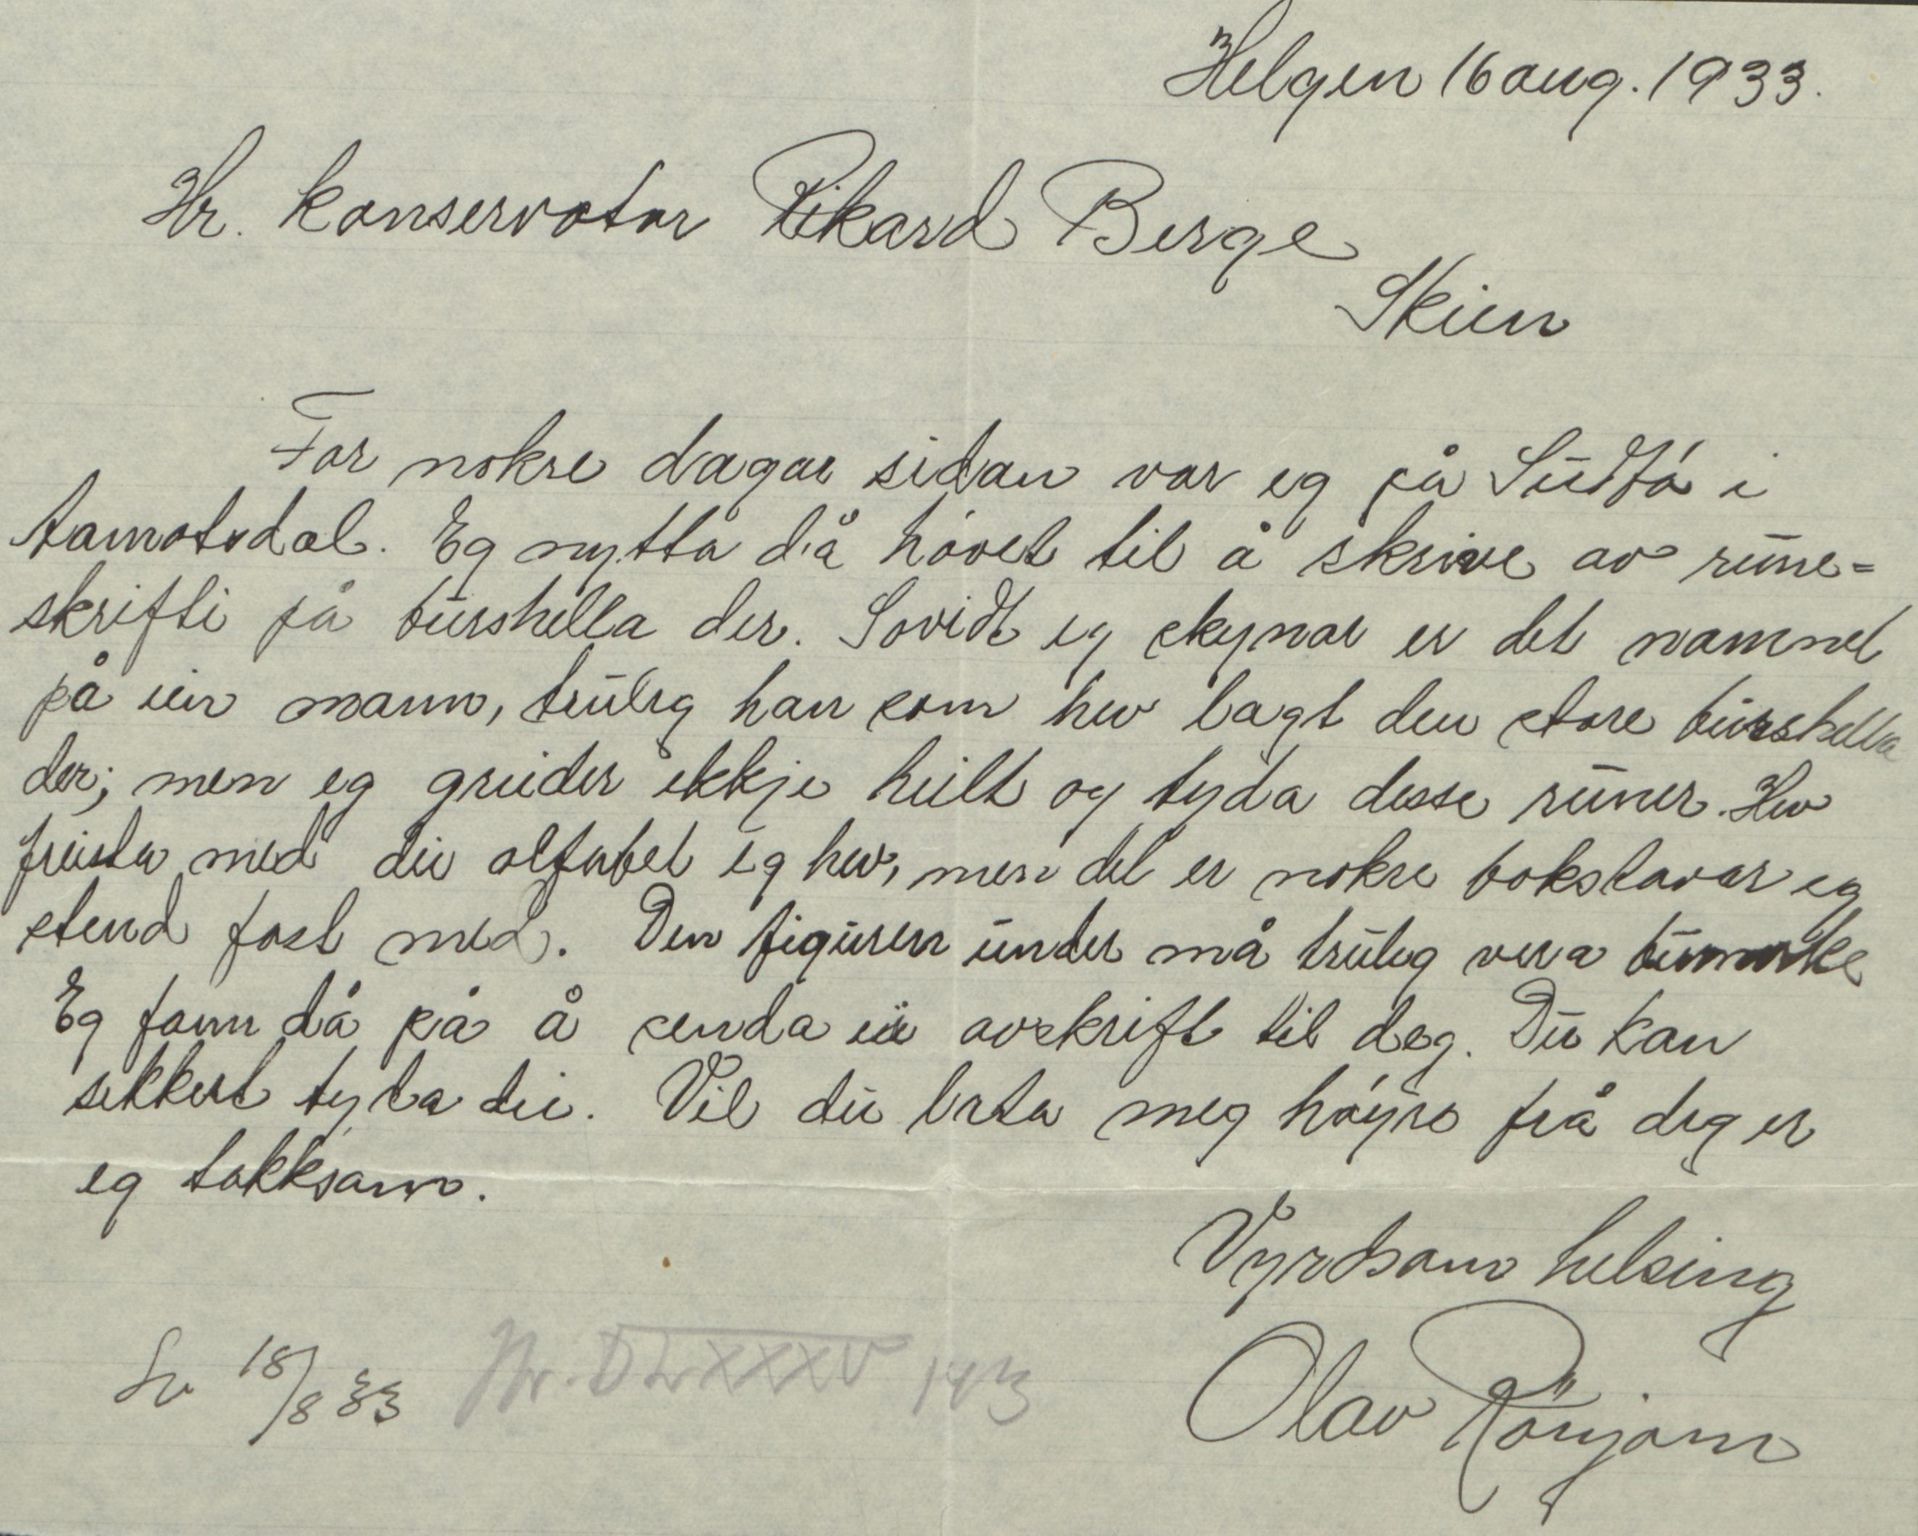 Helgen 16 aug. 1933.
Hr. konservator Rikard Berge
Skien
For nokre dagar sidan var eg på Sudbö i
åamotsdal. Eg nytta då hövet til å skrive av rune=
skrifti på burshella der. Sovidt eg skynar er det namnet
på ein mann, truleg han som hev lagt den store burshella
der; men eg greider ikkje heilt og tyda desse runer. Hev
freista med dei alfabet eg hev, men det er nokre bokstavar eg
stend fast med. Den figuren under må truleg vera bumerke
Eg fann då på å senda ei avskrift til deg. Du kan
sikkert tyda dei. Vil du lata meg höyra frå deg er
eg takksam.
Vyrdsam helsing
Olav
Sv 18/8 33 Nr. DLXXXV 1933